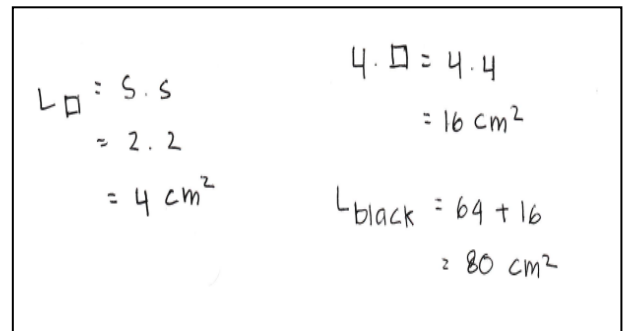 L□ = S.S
= 2.2
= 4 cm²
4.□ = 4.4
= 16 cm²
L black = 64 + 16
= 80 cm²